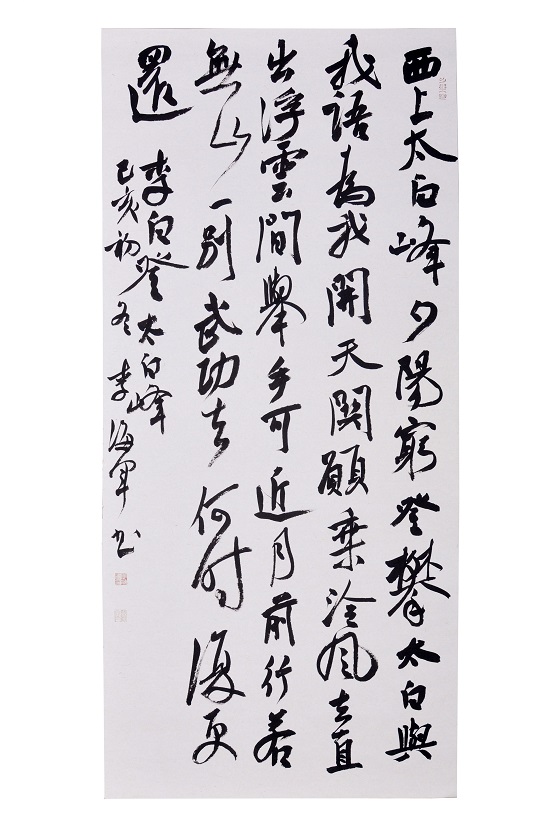 西上太白峰夕陽窮登攀太白與
我語為我開天關願乘泠風去直
出浮雲間舉手可近月前行若
無山一別武功去何時復更
還
李白登太白峰
己亥初冬李海軍书